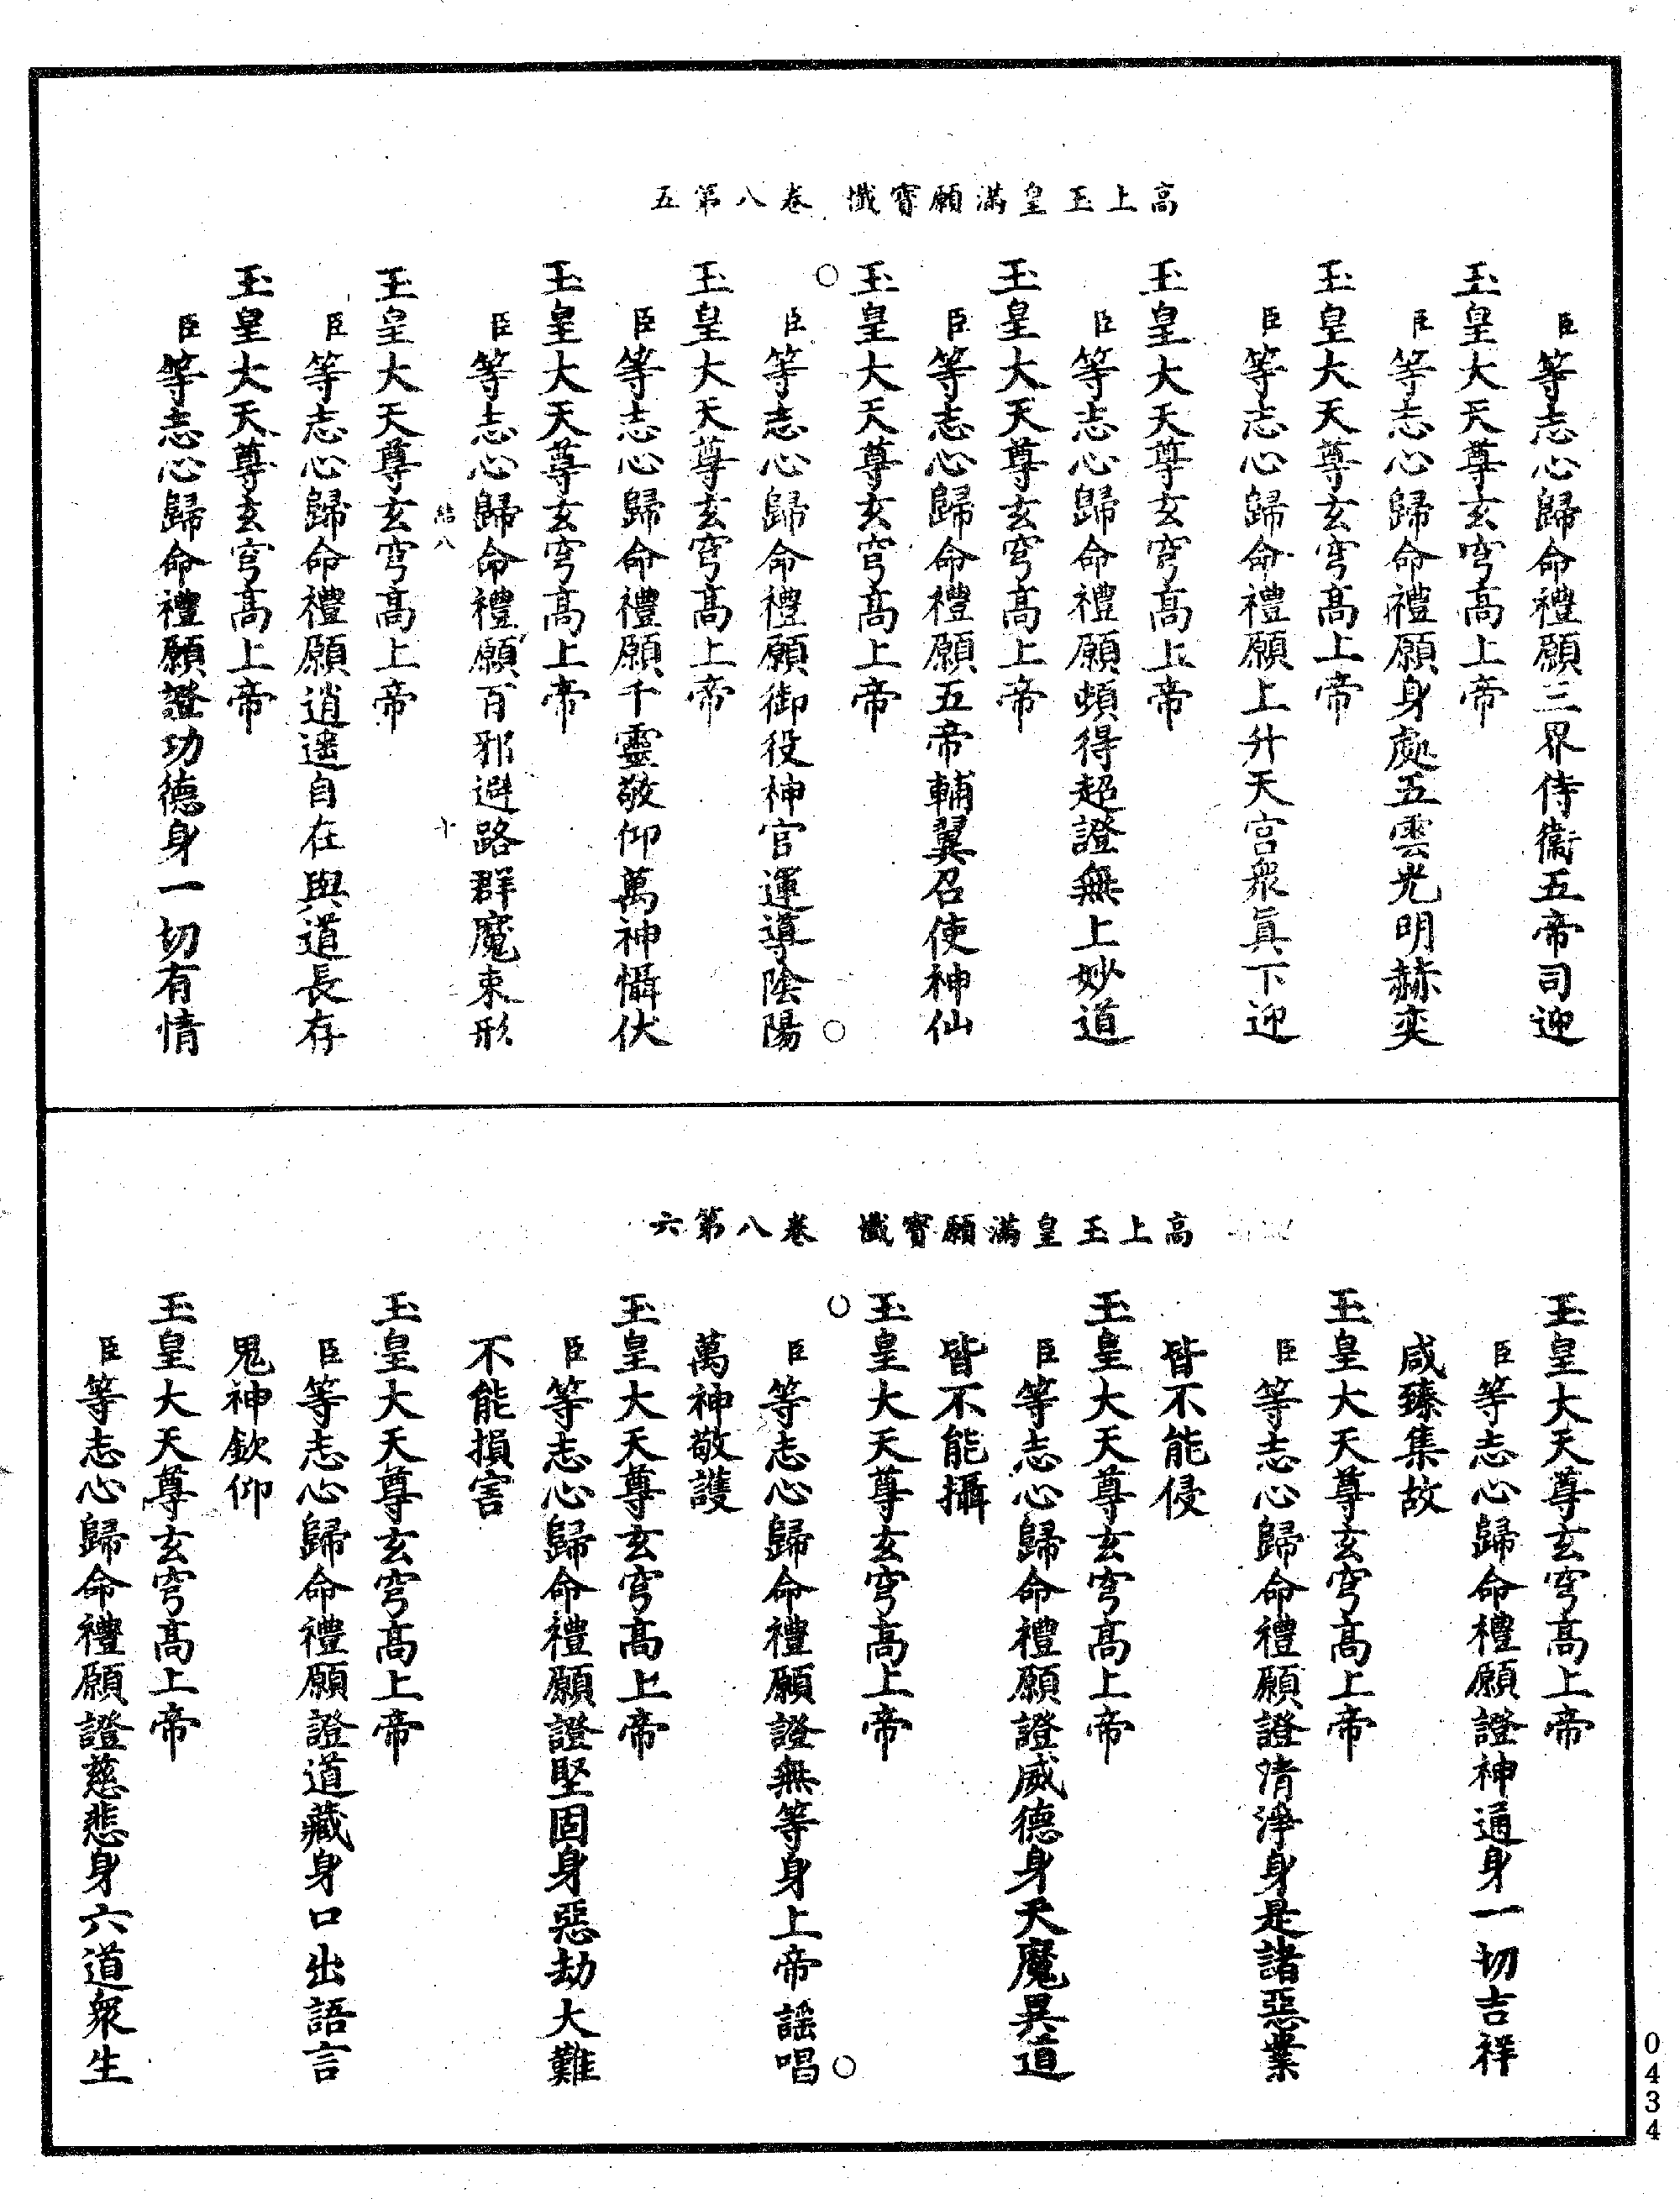 高上玉皇滿願寶懺　卷八第五
臣等志心歸命禮願三界侍衞五帝司迎
玉皇大天尊玄穹高上帝
臣等志心歸命禮願身處五雲光明赫奕
玉皇大天尊玄穹高上帝
臣等志心歸命禮願上升天宮衆眞下迎
玉皇大天尊玄穹高上帝
臣等志心歸命禮願頓得超證無上妙道
玉皇大天尊玄穹高上帝
臣等志心歸命禮願五帝輔翼召使神仙
玉皇大天尊玄穹高上帝
臣等志心歸命禮願御役神官運導陰陽
玉皇大天尊玄穹高上帝
臣等志心歸命禮願千靈敬仰萬神懾伏
玉皇大天尊玄穹高上帝
臣等志心歸命禮願百邪避路群魔束形
結八　十
玉皇大天尊玄穹高上帝
臣等志心歸命禮願逍遙自在與道長存
玉皇大天尊玄穹高上帝
臣等志心歸命禮願證功德身一切有情
高上玉皇滿願寶懺　卷八第六
玉皇大天尊玄穹高上帝
臣等志心歸命禮願證神通身一切吉祥
咸臻集故
玉皇大天尊玄穹高上帝
臣等志心歸命禮願證清淨身是諸惡業
皆不能侵
玉皇大天尊玄穹高上帝
臣等志心歸命禮願證威德身天魔異道
皆不能攝
玉皇大天尊玄穹高上帝
臣等志心歸命禮願證無等身上帝謡唱
萬神敬護
玉皇大天尊玄穹高上帝
臣等志心歸命禮願證堅固身惡劫大難
不能損害
玉皇大天尊玄穹高上帝
臣等志心歸命禮願證道藏身口出語言
鬼神欽仰
玉皇大天尊玄穹高上帝
臣等志心歸命禮願證慈悲身六道衆生
0434